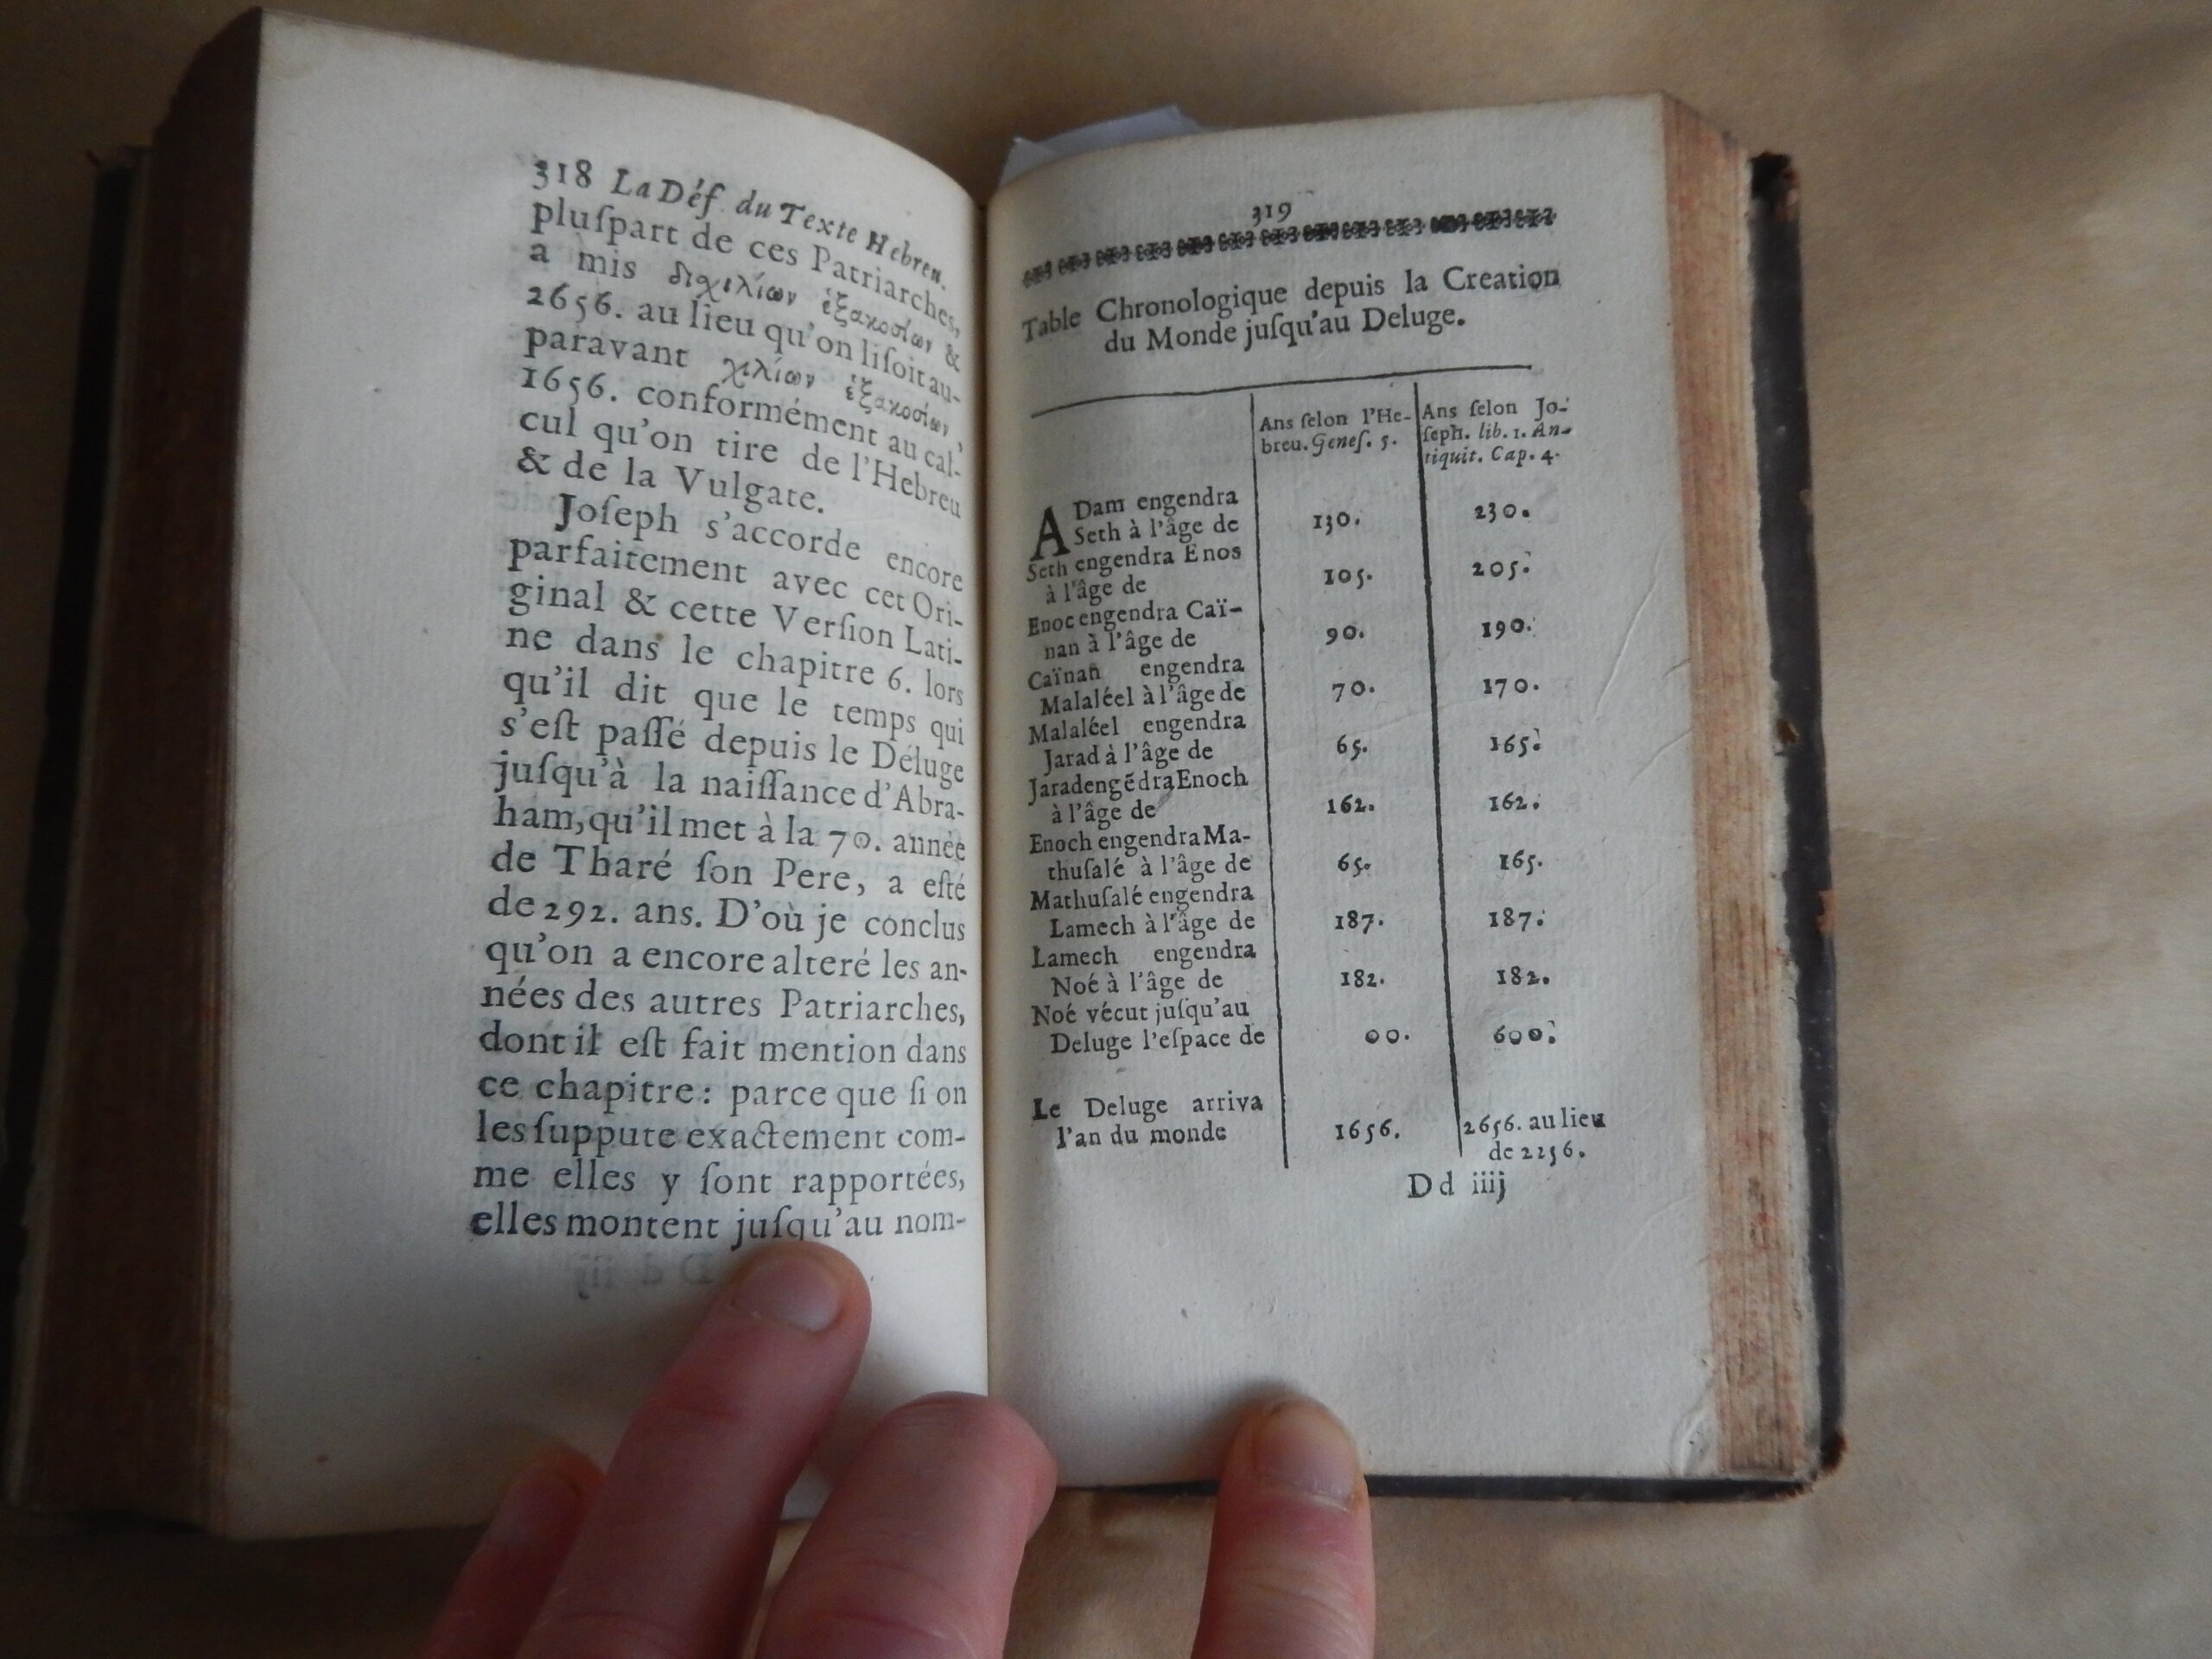 318 La Déf. du Texte Hebreu.
pluſpart de ces Patriarches,
a mis διχιλίων ἑξακοσίων &
2656. au lieu qu'on liſoit au-
paravant χιλίων ἑξακοσίων,
1656. conformément au cal-
cul qu'on tire de l'Hebreu
& de la Vulgate.
Joſeph s'accorde encore
parfaitement avec cet Ori-
ginal & cette Verſion Lati-
ne dans le chapitre 6. lors
qu'il dit que le temps qui
s'eſt paſſé depuis le Déluge
juſqu'à la naiſſance d'Abra-
ham, qu'il met à la 70. année
de Tharé ſon Pere, a eſté
de 292. ans. D'où je conclus
qu'on a encore alteré les an-
nées des autres Patriarches,
dont il eſt fait mention dans
ce chapitre: parce que ſi on
les ſuppute exactement com-
me elles y ſont rapportées,
elles montent juſqu'au nom-
319
Table Chronologique depuis la Creation
du Monde juſqu'au Deluge.
Ans ſelon l'He-
breu. Geneſ. 5.
Ans ſelon Jo-
ſeph. lib. 1. An-
tiquit. Cap. 4.
ADam engendra
Seth à l'âge de 130. 230.
Seth engendra Enos
à l'âge de 105. 205.
Enoc engendra Caï-
nan à l'âge de 90. 190.
Caïnan engendra
Malaléel à l'âge de 70. 170.
Malaléel engendra
Jarad à l'âge de 65. 165.
Jarad engẽdra Enoch
à l'âge de 162. 162.
Enoch engendra Ma-
thuſalé à l'âge de 65. 165.
Mathuſalé engendra
Lamech à l'âge de 187. 187.
Lamech engendra
Noé à l'âge de 182. 182.
Noé vécut juſqu'au
Deluge l'eſpace de 00. 600.
Le Deluge arriva
l'an du monde 1656. 2656. au lieu
de 2256.
Dd iiij